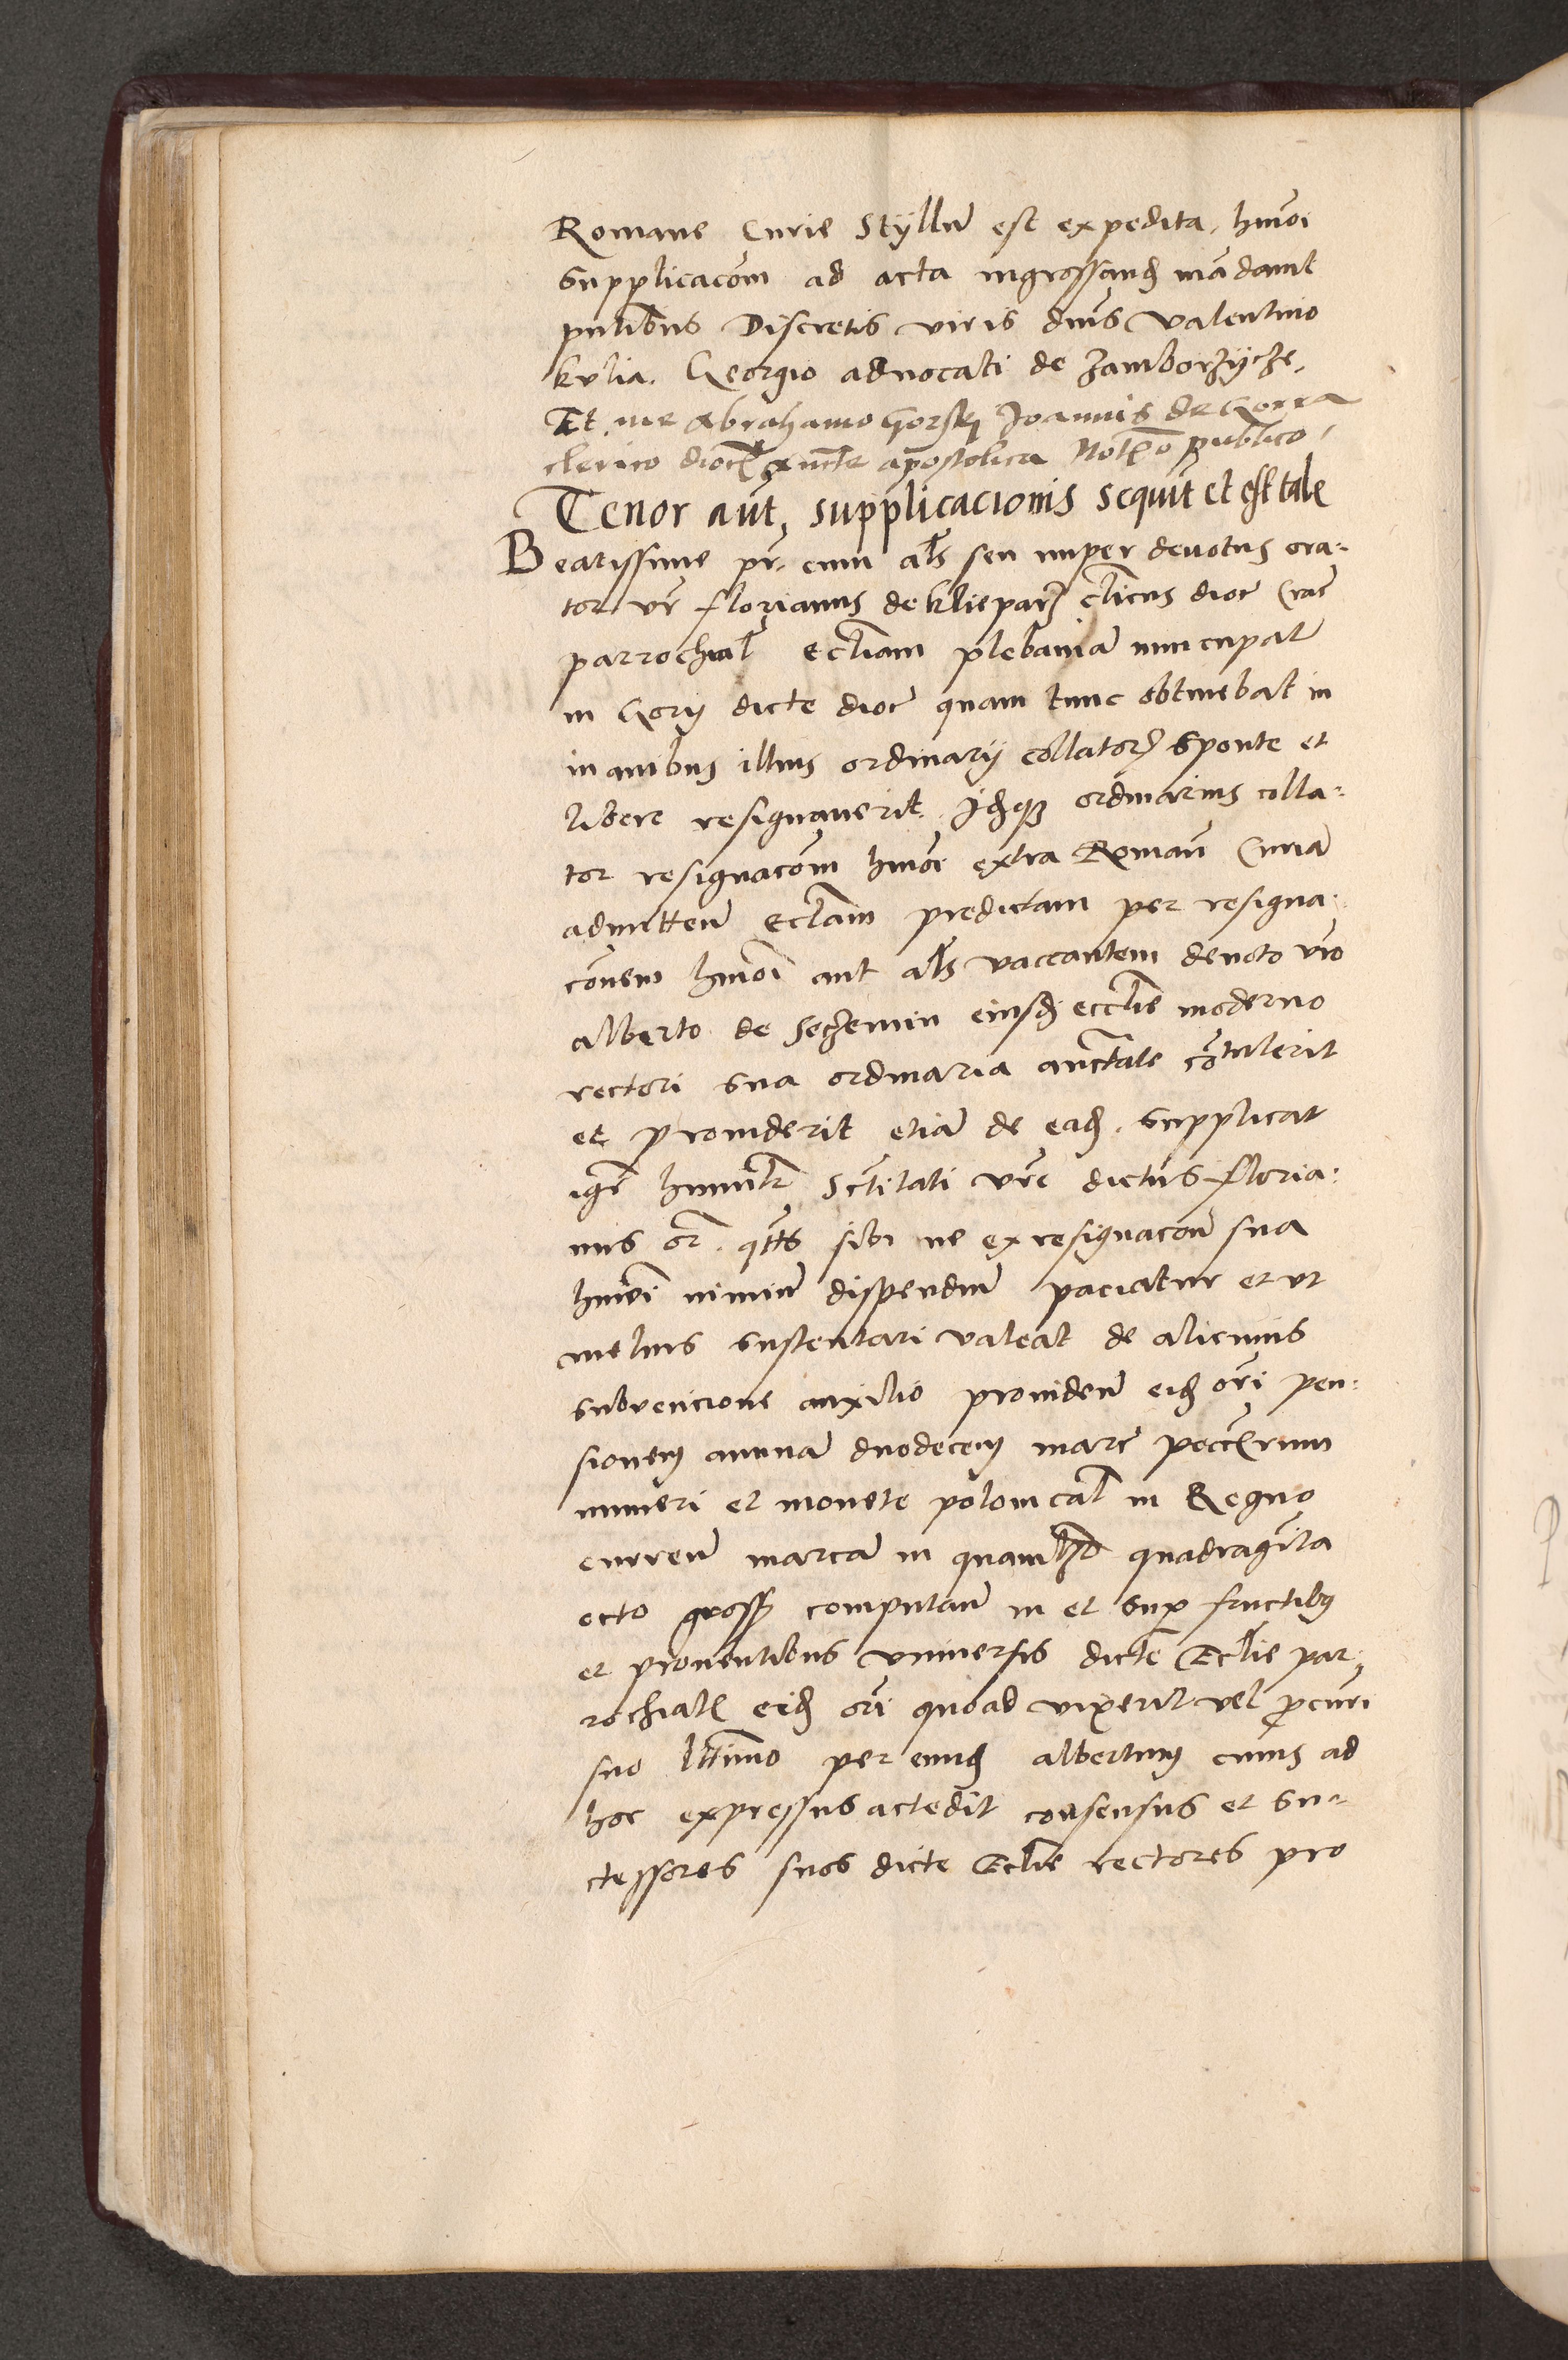 Romane Curie Styllū est expedita, hmōi
supplicacōm ad acta ingrossanḍ mādavit
pntibus Discretis viris dnis Valentino
kulia. Georgio advocati de Zamborzÿcze,
Et me Abrahamo Gorskj Joannis de Gorra
clerico dioc apostolica Notro publico,
Tenor aut, supplicacionis sequit et est tale
Beatissime pr. cum als seu nuper devotus ora-
tor vr florianus de klieparz clicus dioc Crac
parrochial eccliam plebaniā nuncupat
in Gory dicte dioc quam tunc obtinebat in
manibus illius ordinarÿ collatorꝭ sponte et
libere resignaverit. Idqȝ ordinarius colla-
tor resignacōm hmōi extra Romanā Curiā
admitteñ Eccłam predictam per resigna-
cōnem hmōi aut als vaccantem devoto vro
alberto de Sechemin eiusḍ ecclie moderno
rectori sua ordinaria auctate cōtulerit
et providerit etiā de eadḍ. supplicat
igr humilr Sctitati vre dictus floria-
nus or. qtts sibi ne ex resignacōn sua
hmōi nimiū dispendiū paciatur et ut
melius sustentari valeat de alicuius
subvencione auxilio providenū eidḍ ori pen-
sionem annuā duodecem marc peccrum
numeri et monete polonicał in Regno
curreñ marcā in quamlȝ quadragīta
octo grossꝭ computañ in et sup fructibꝰ
et proventibus universis dicte Ecclie par-
rochialꝭ eidḍ ori quoad vixerit vel p̱curi
suo lttimo per eumḍ albertum cuius ad
hoc expressus actedit consensus et su-
ctessores suos dicte Ecclie rectores pro